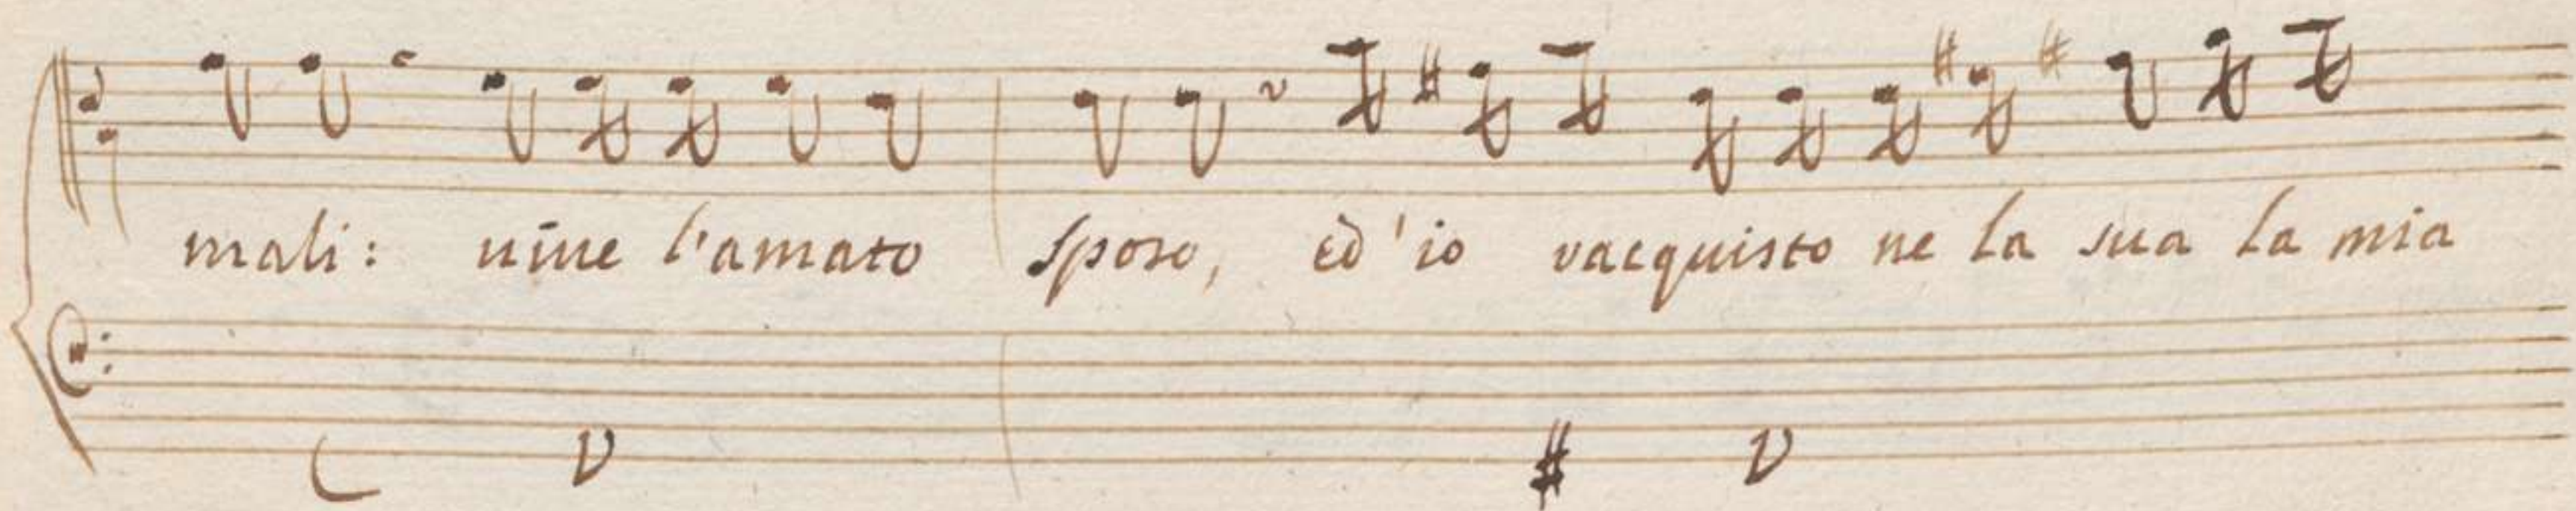 mali: uiue l'amato sposo, ed' io racquisto ne la sua la mia